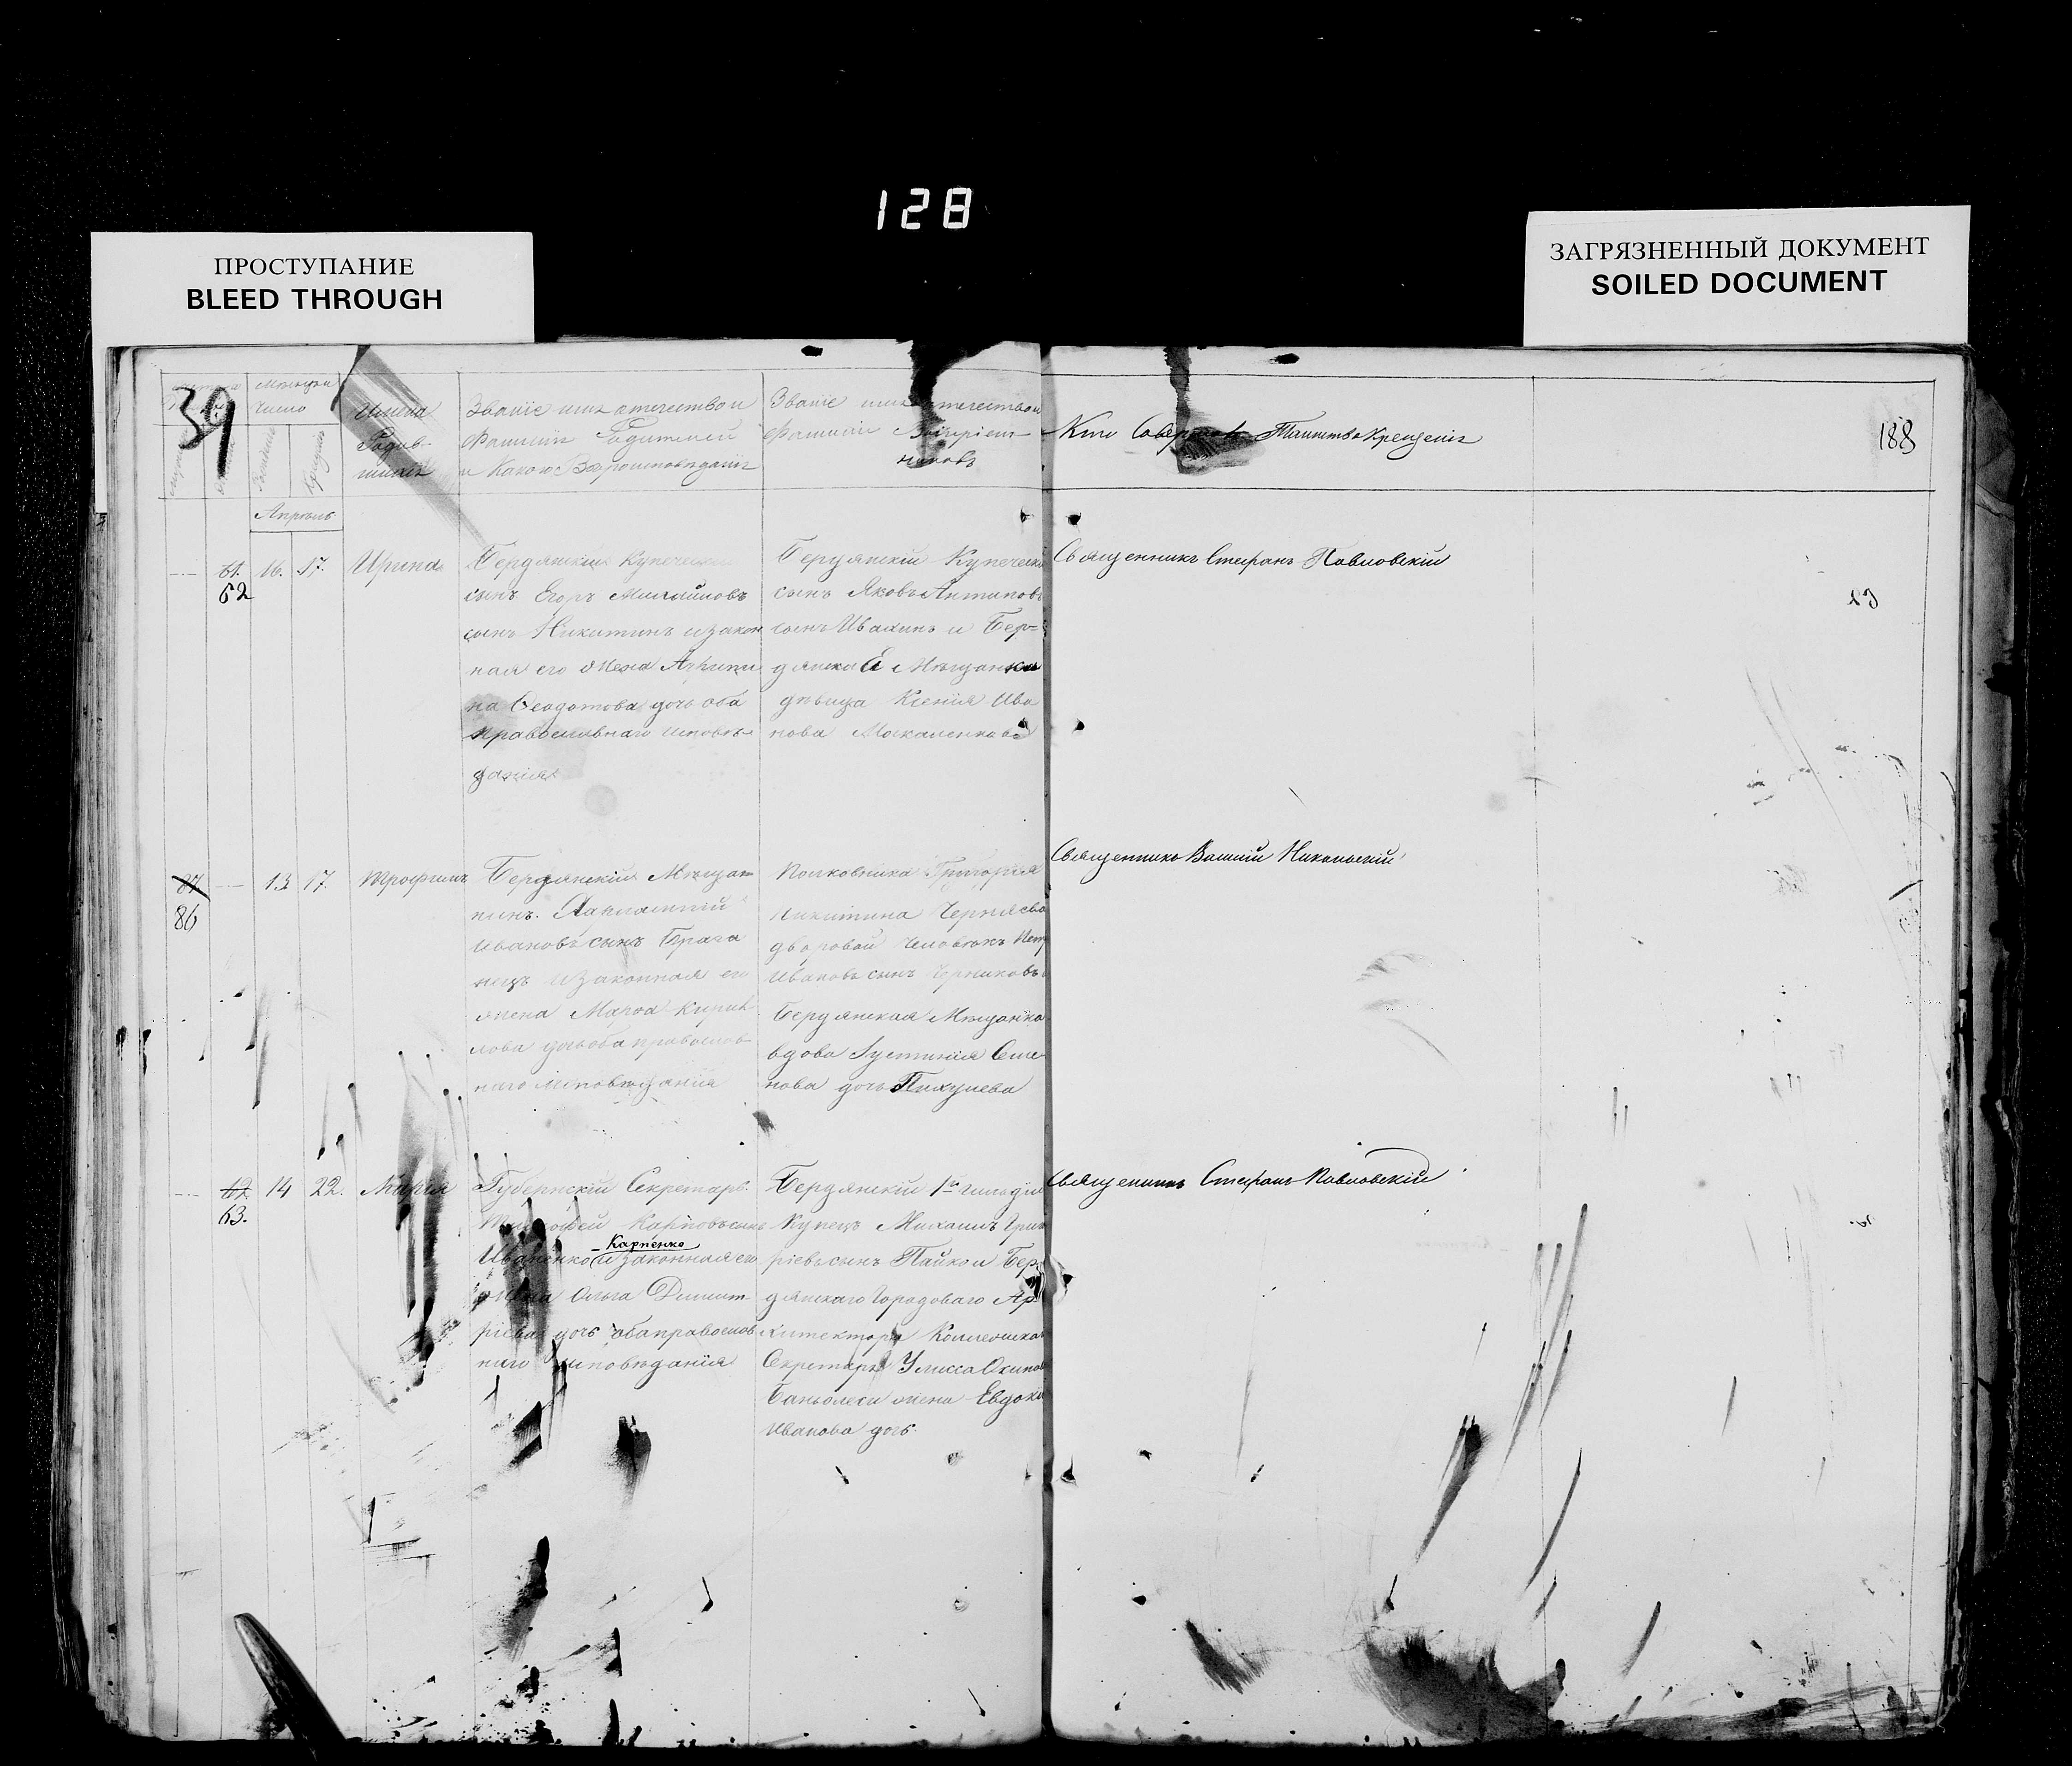 128
ПРОСТУПАНИЕ
BLEED THROUGH
ЗАГРЯЗНЕННЫЙ ДОКУМЕНТ
SOILED DOCUMENT
39
число
Имена
Родив-
шихся
Званіе имя отчество и
Фамилія Родителей
и Какого Вероисповеданія
Званіе имя отчество и
Фамилія Воспріем-
никовъ
Кто Совершалъ Таинство Крещенія
188
Апрель
61.
62
16.
17.
Ирина
Бердянскій Купеческій
сынъ Егоръ Михайловъ
сынъ Никитинъ и закон
ная его жена Агрипи
на Феодотова дочь оба
православнаго исповѣ
данія
Бердянскій Купеческі
сынъ Яковъ Антиповъ
сынъ Ивахинъ и Бер=
дянская Мѣщанка
дѣвица Ксенія Ива
нова Москаленкова
Священникъ Стефанъ Павловскій
87
86
13
17
Трофимъ
Бердянскій Мѣщан
нинъ
Ивановъ сынъ
и законная его
жена Марфа Кирил
лова дочь оба православ
наго исповѣданія
Полковника Григорія
Никитина Черняева
дворовой человѣкъ Петр
Ивановъ сынъ Черниковъ
Бердянская Мѣщанка
вдова Іустинія Семе
нова дочь
Священникъ Василій Никольскій
62
63.
14
22.
Марія
Губернскій Секретарь
Карповъ сынъ
Иваненко
Карпенко
и законная его
жена Ольга Димит
ріева дочь оба православ
наго исповѣданія
Бердянскій 1й гильдіи
Купецъ Михаилъ Григо
ріевъ сынъ Пайко и Бер
дянскаго Городоваго Ар
хитектора Коллежска
Секретаря Улисса Осипов
жена Евдокі
Иванова дочь.
Священникъ Стефанъ Павловскій